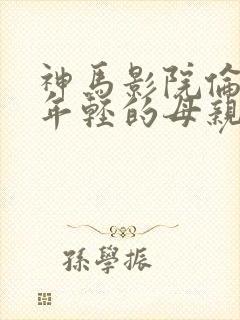 神馬影院倫
年輕的母親
孫學振